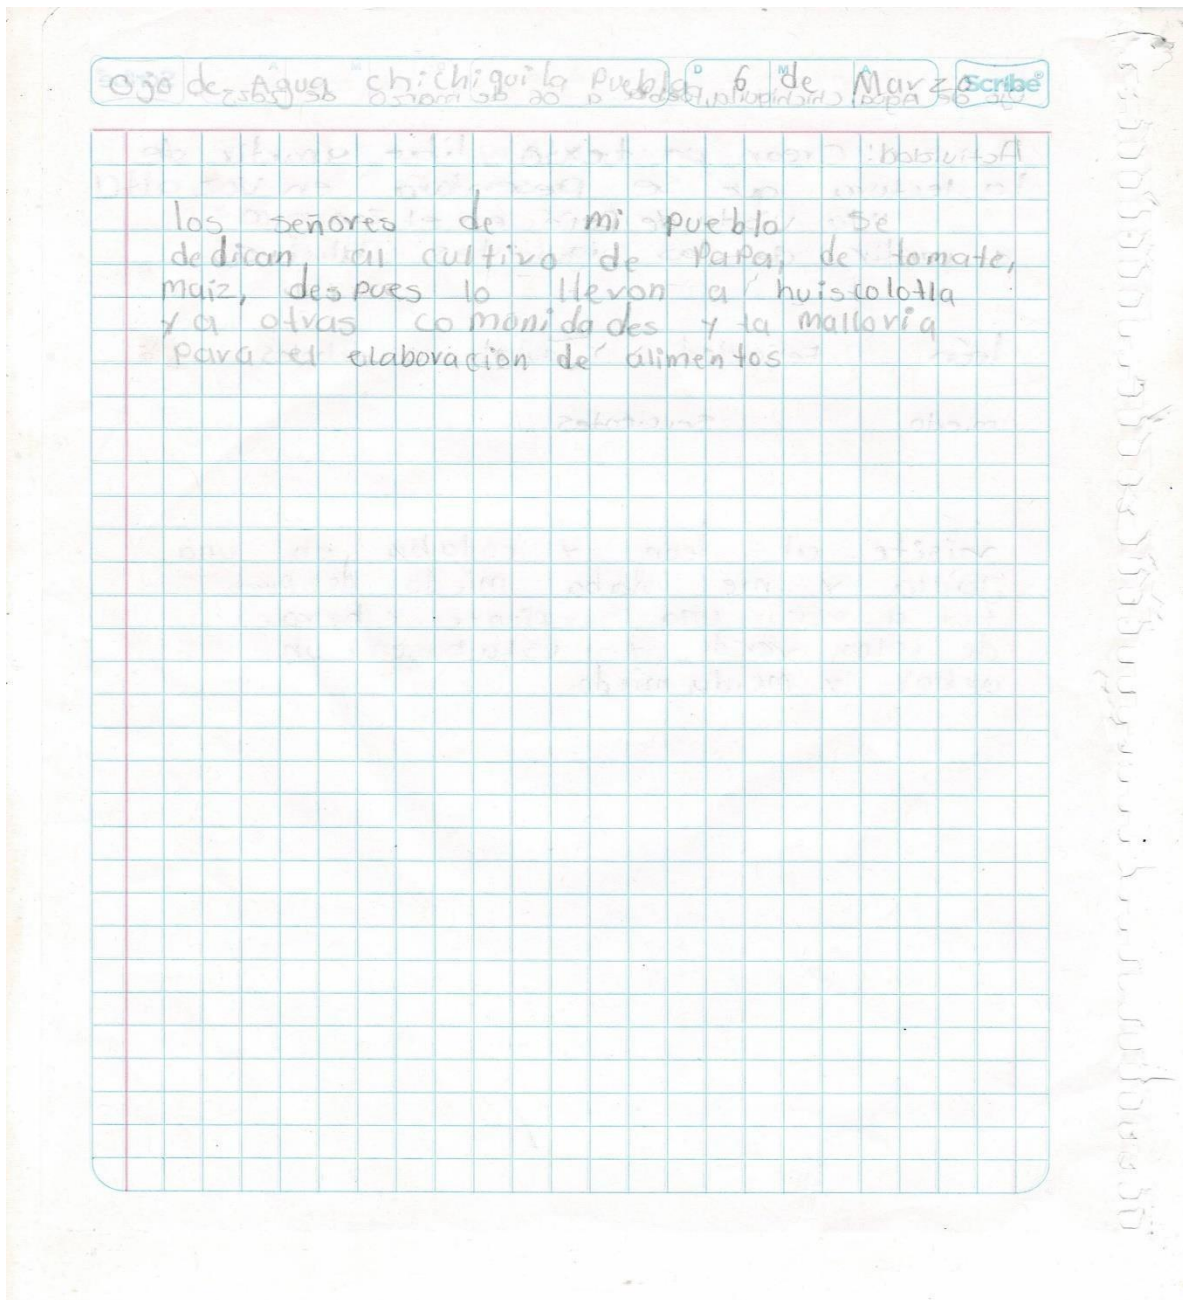 Ojo de Agua chichiquila Puebla 6 de Marzo
Scribe
los señores de mi pueblo se
dedican, al cultivo de PaPa, de tomate,
maíz, despues lo llevon a huiscolotla
y a otras comonidades y la malloria
para el elaboracion de alimentos